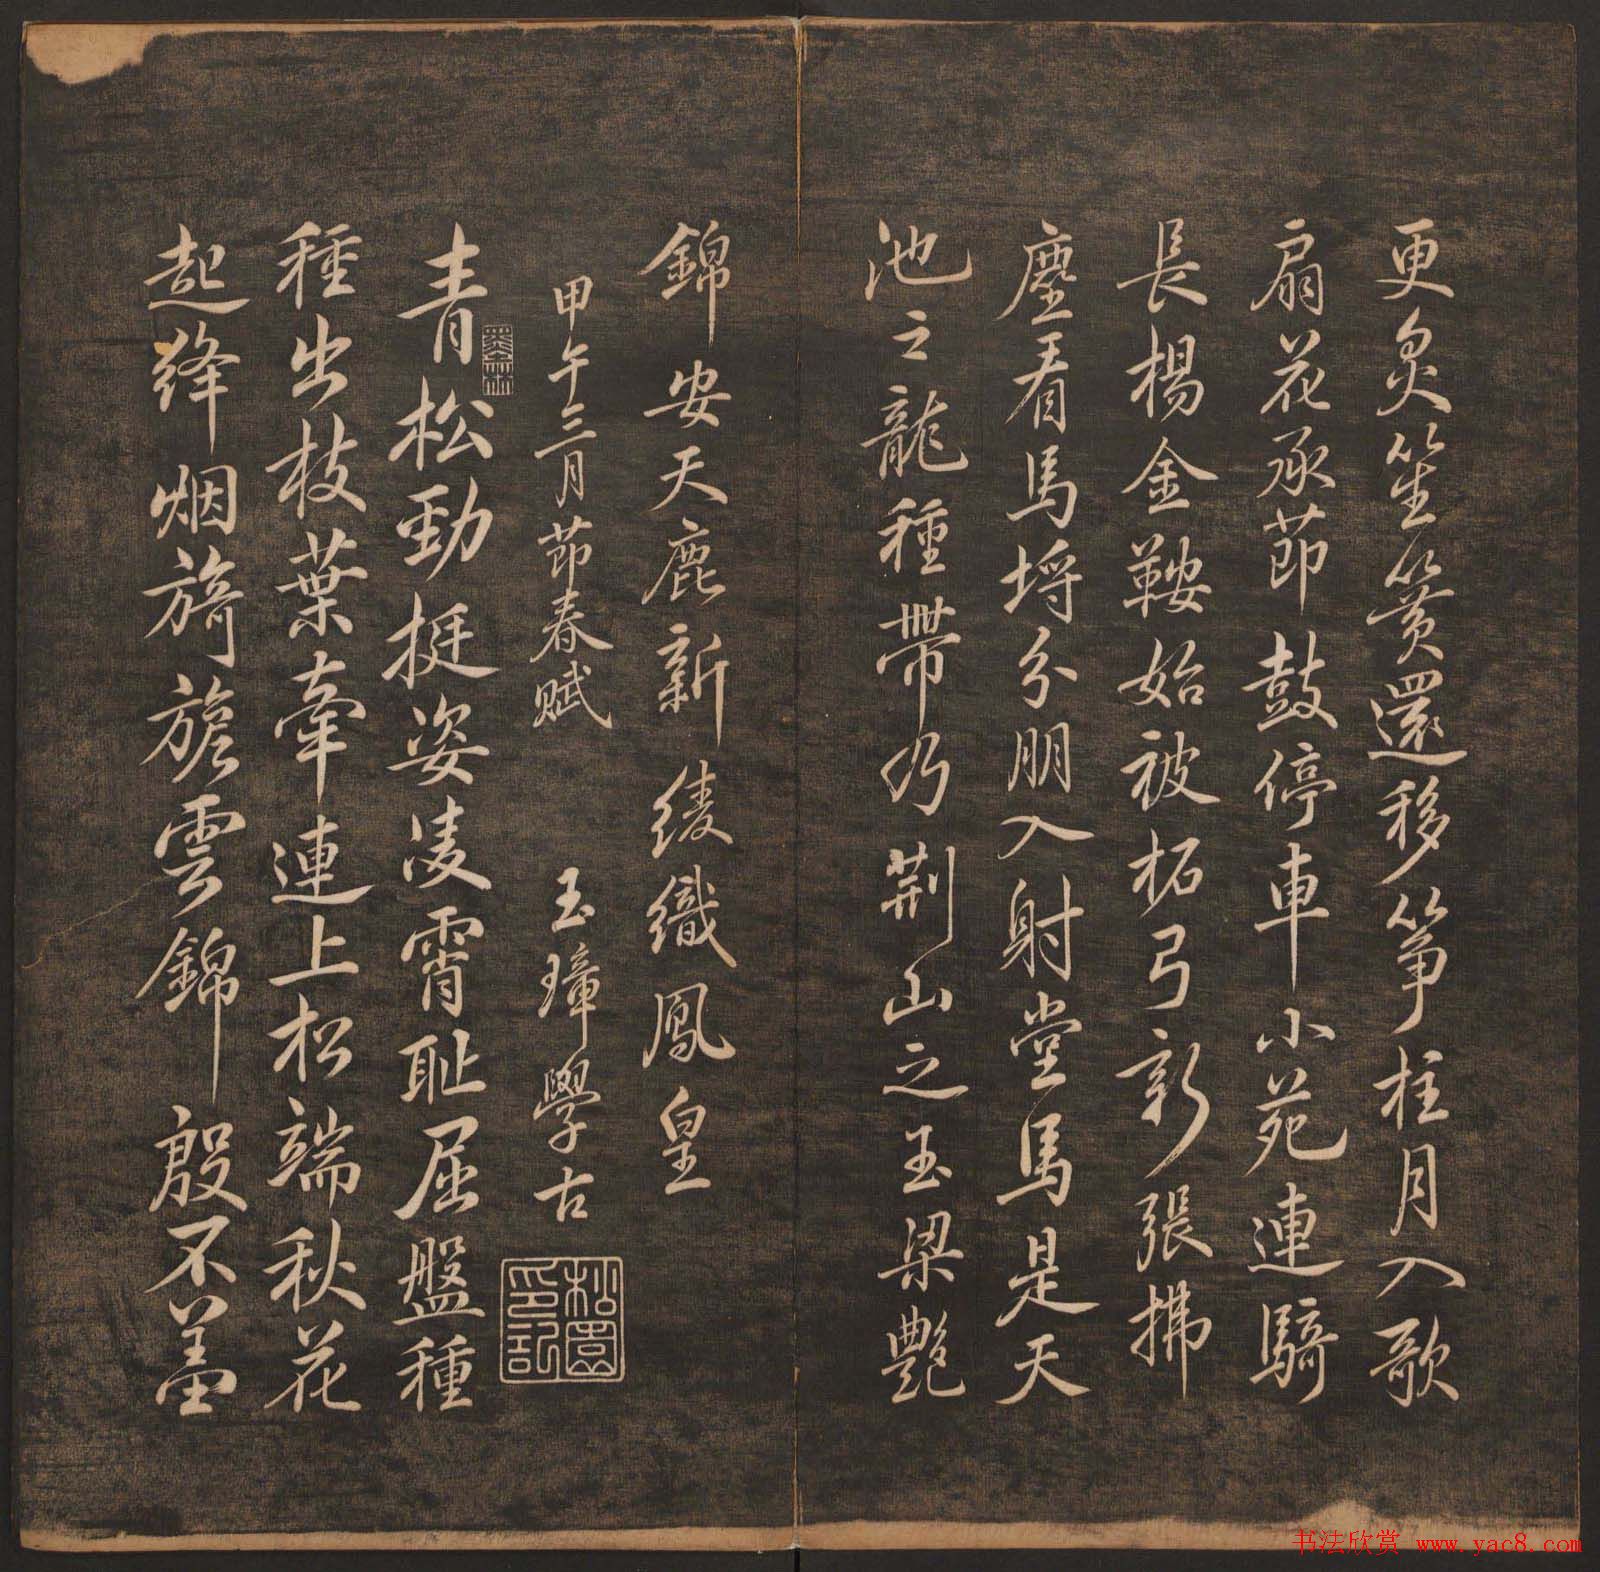 更炙笙簧還移筝柱月入歌
扇花承節鼓停車小苑連騎
長楊金鞍始被柘弓新張拂
塵看馬埒分朋入射堂馬是天
池之龍種帶乃荆山之玉梁艷
錦安天鹿新綾織鳳皇
甲午三月節春賦 玉璋學古
松園印記
墨林
青松勁挺姿凌霄恥屈盤種
種出枝葉牽連上松端秋花
起絳烟旖旎雲錦殷不羞
书法欣赏 www.yac8.com